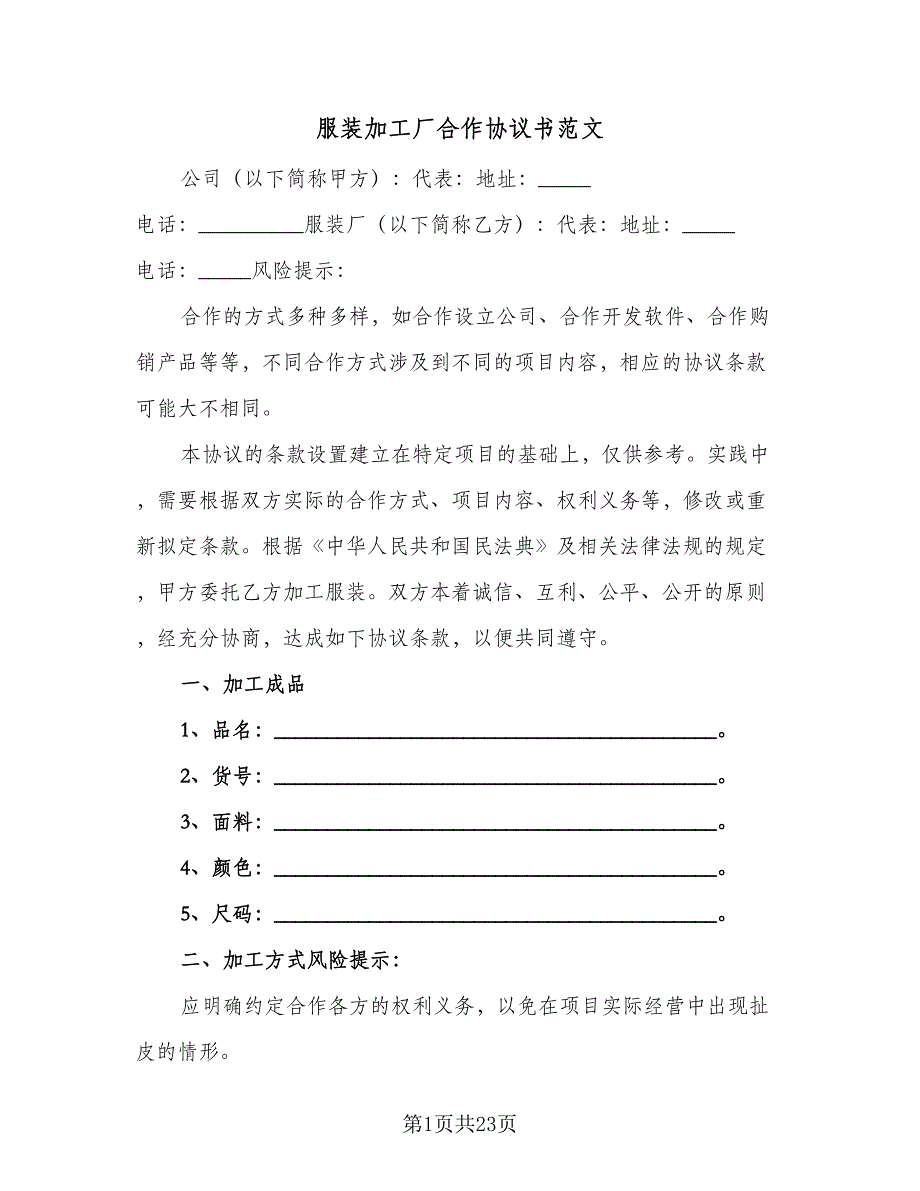 服装加工厂合作协议书范文
公司（以下简称甲方）：代表：地址：_____
电话：__________服装厂（以下简称乙方）：代表：地址：_____
电话：_____风险提示：
合作的方式多种多样，如合作设立公司、合作开发软件、合作购
销产品等等，不同合作方式涉及到不同的项目内容，相应的协议条款
可能大不相同。
本协议的条款设置建立在特定项目的基础上，仅供参考。实践中
，需要根据双方实际的合作方式、项目内容、权利义务等，修改或重
新拟定条款。根据《中华人民共和国民法典》及相关法律法规的规定
，甲方委托乙方加工服装。双方本着诚信、互利、公平、公开的原则
，经充分协商，达成如下协议条款，以便共同遵守。
一、加工成品
1、品名：__________________________________________。
2、货号：__________________________________________。
3、面料：__________________________________________。
4、颜色：__________________________________________。
5、尺码：__________________________________________。
二、加工方式风险提示：
应明确约定合作各方的权利义务，以免在项目实际经营中出现扯
皮的情形。
第1页共23页